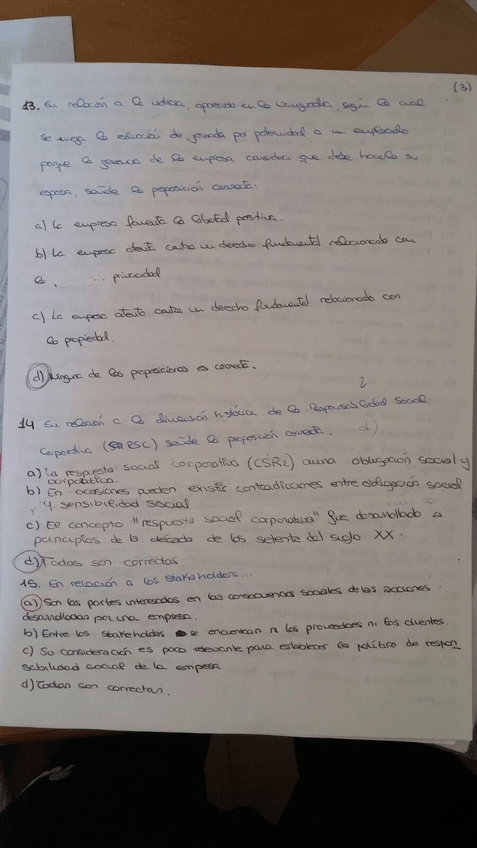 (3)
13. En relación a la noticia, aparecida en la Vanguardia, según la cual
se niega la reducción de jornada por paternidad a un empleado
porque la gerencia de la empresa considera que debe hacerlo su
esposa, señale la proposición correcta:
a) La empresa fomenta la libertad positiva.
b) La empresa atenta contra un derecho fundamental relacionado con
la ... privacidad
c) La empresa atenta contra un derecho fundamental relacionado con
la propiedad.
d) Ninguna de las proposiciones es correcta.
14 En relación a la dimensión histórica de la Responsabilidad Social
Corporativa (RSC) señale la proposición correcta. d)
a) La respuesta social corporativa (CSR2) aúna obligación social y
corporativa.
b) En ocasiones pueden existir contradicciones entre obligación social
y sensibilidad social
c) El concepto "respuesta social corporativa" fue desarrollado a
principios de la década de los setenta del siglo XX.
d) Todas son correctas
15. En relación a los stakeholders...
a) Son las partes interesadas en las consecuencias sociales de las acciones
desarrolladas por una empresa.
b) Entre los stakeholders se encuentran ni los proveedores ni los clientes.
c) Su consideración es poco relevante para establecer la política de respon
sabilidad social de la empresa
d) Todas son correctas.